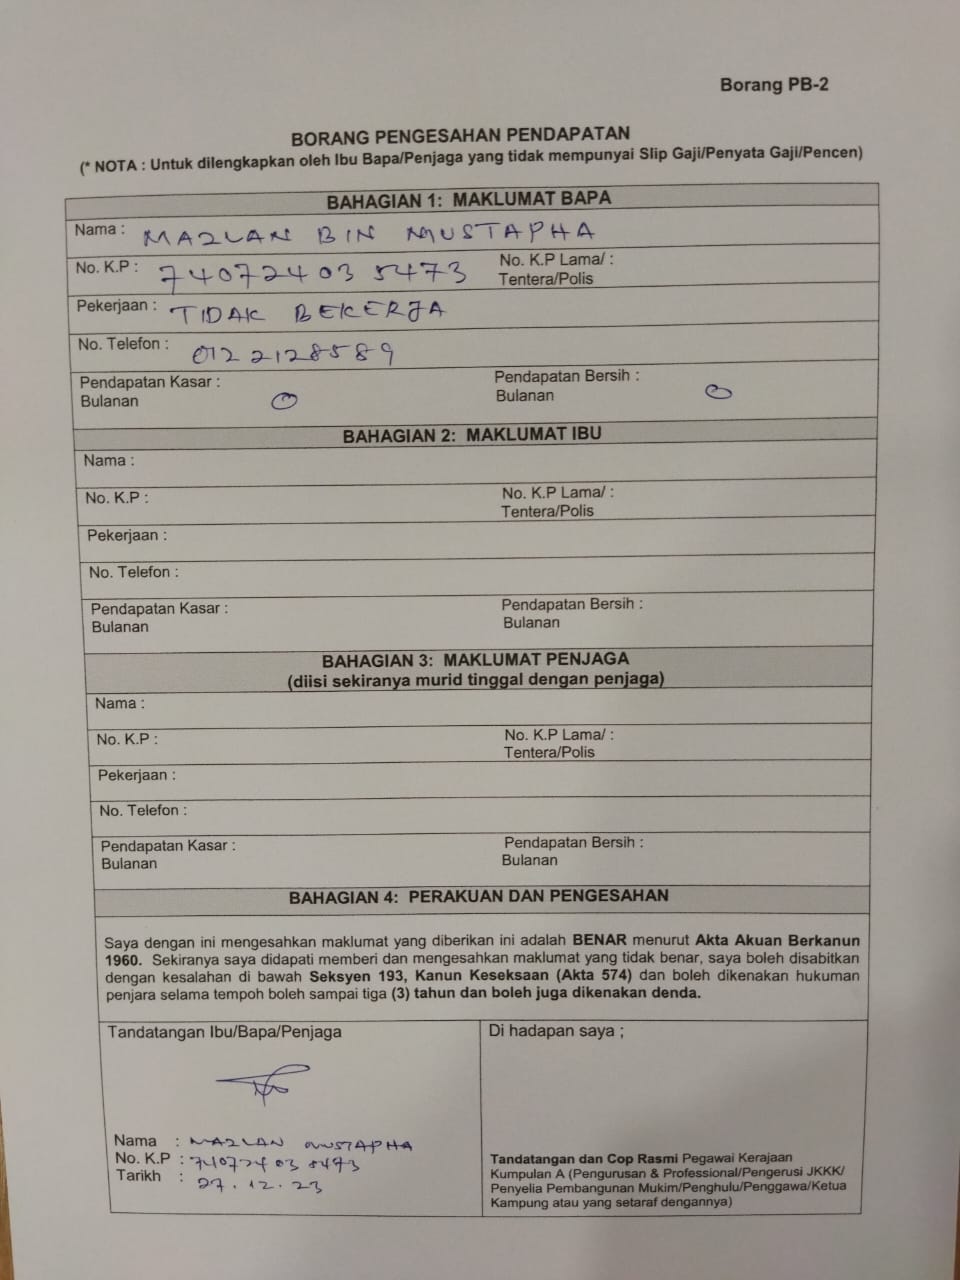 Borang PB-2
BORANG PENGESAHAN PENDAPATAN
(* NOTA : Untuk dilengkapkan oleh Ibu Bapa/Penjaga yang tidak mempunyai Slip Gaji/Penyata Gaji/Pencen)
BAHAGIAN 1: MAKLUMAT BAPA
Nama : MAZLAN BIN MUSTAPHA
No. K.P : 740724035473 No. K.P Lama/ :
Tentera/Polis
Pekerjaan : TIDAK BEKERJA
No. Telefon : 0122128589
Pendapatan Kasar : Pendapatan Bersih :
Bulanan 0 Bulanan 0
BAHAGIAN 2: MAKLUMAT IBU
Nama :
No. K.P : No. K.P Lama/ :
Tentera/Polis
Pekerjaan :
No. Telefon :
Pendapatan Kasar : Pendapatan Bersih :
Bulanan Bulanan
BAHAGIAN 3: MAKLUMAT PENJAGA
(diisi sekiranya murid tinggal dengan penjaga)
Nama :
No. K.P : No. K.P Lama/ :
Tentera/Polis
Pekerjaan :
No. Telefon :
Pendapatan Kasar : Pendapatan Bersih :
Bulanan Bulanan
BAHAGIAN 4: PERAKUAN DAN PENGESAHAN
Saya dengan ini mengesahkan maklumat yang diberikan ini adalah BENAR menurut Akta Akuan Berkanun
1960. Sekiranya saya didapati memberi dan mengesahkan maklumat yang tidak benar, saya boleh disabitkan
dengan kesalahan di bawah Seksyen 193, Kanun Keseksaan (Akta 574) dan boleh dikenakan hukuman
penjara selama tempoh boleh sampai tiga (3) tahun dan boleh juga dikenakan denda.
Tandatangan Ibu/Bapa/Penjaga
Nama : MAZLAN MUSTAPHA
No. K.P : 740724035473
Tarikh : 27.12.23
Di hadapan saya ;
Tandatangan dan Cop Rasmi Pegawai Kerajaan
Kumpulan A (Pengurusan & Professional/Pengerusi JKKK/
Penyelia Pembangunan Mukim/Penghulu/Penggawa/Ketua
Kampung atau yang setaraf dengannya)